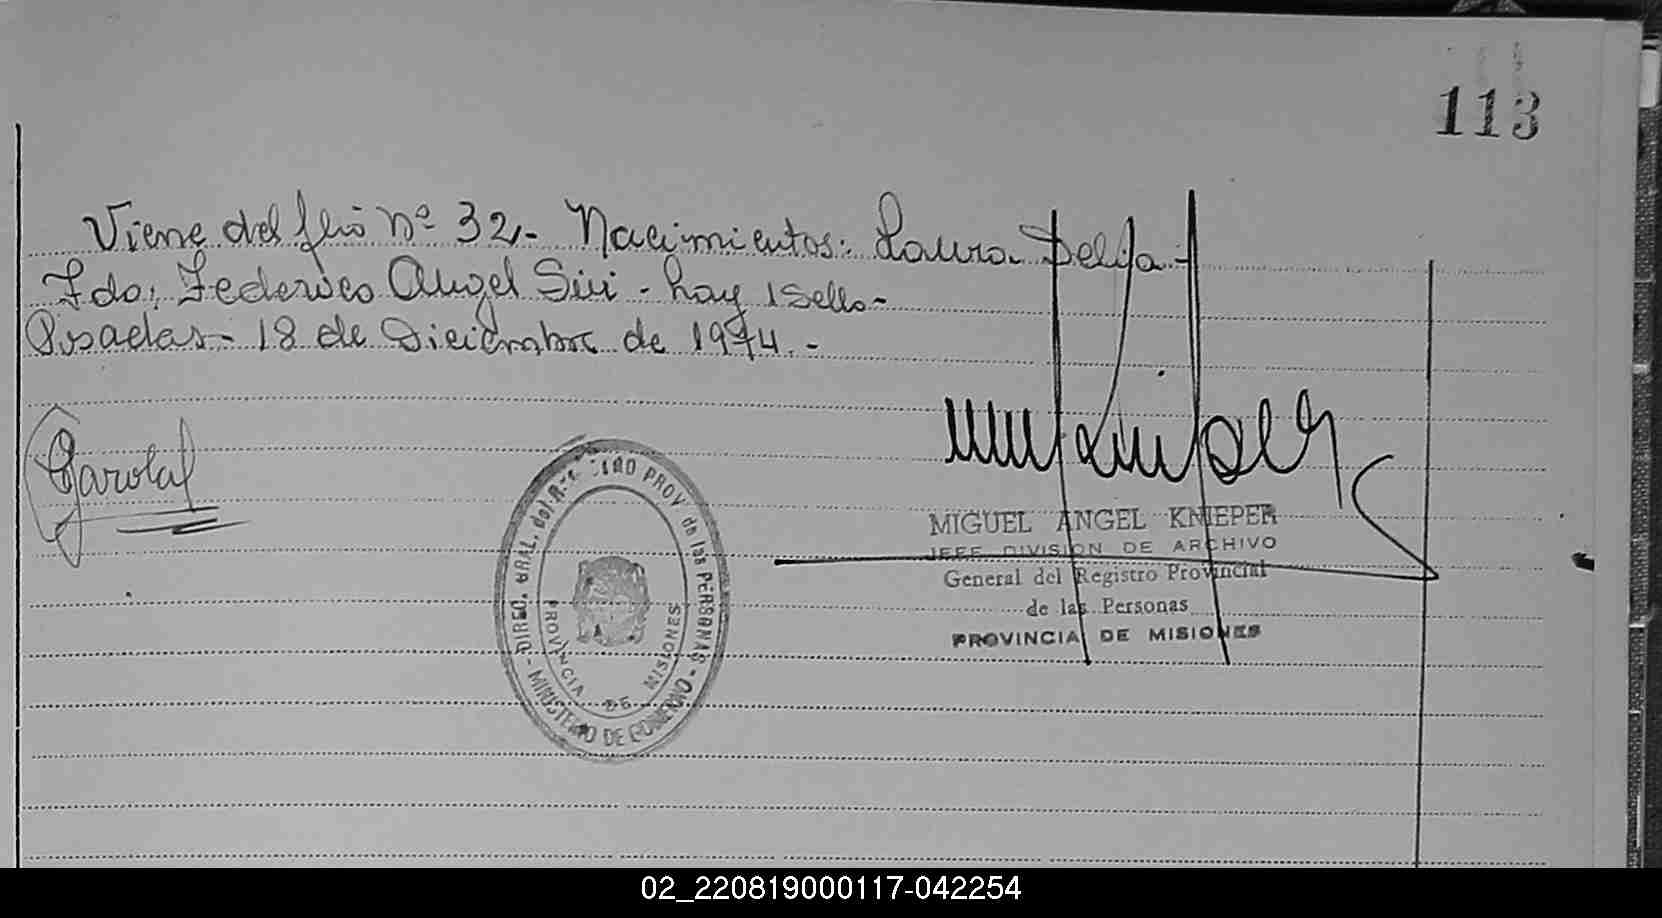 113
Viene del flio Nº 32.- Nacimientos: Laura Delia -
Fdo: Federico Angel Siri - hay 1 sello-
Posadas - 18 de Diciembre de 1974.-
MIGUEL ANGEL KNIEPER
JEFE DIVISION DE ARCHIVO
General del Registro Provincial
de las Personas
PROVINCIA DE MISIONES
DIREC. GRAL. del PROV de las PERSONAS - MINISTERIO DE GOBIERNO -
PROVINCIA DE MISIONES
02_220819000117-042254